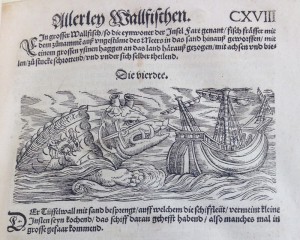 Allerley Wallfischen. CXVIII
Ein grosser Wallfisch/ so die eynwoner der Insel Fare genant/ fisch frässer mit
dem zůnammẽ auß ungestüme des Meers in das sand hinauß geworffen/ mit
einem grossen ysinen haggen an das land härauß gezogen/ mit achsen und bie-
len/ zů stucke schrotend/ und under sich selber theilend.
Die vierdte.
Der Tüffelwall mit sand besprengt/ auff welchem die schiffleüt/ vermeint kleine
Inslen seyn kochend/ das schiff daran gehefft habend/ also manches mal in
grosse gefaar kommend.